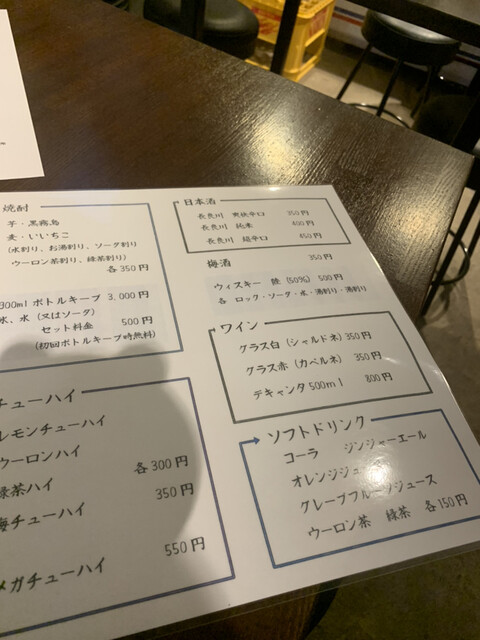 焼酎
芋・黒霧島
麦・いいちこ
(水割り、お湯割り、ソーダ割り
ウーロン茶割り、緑茶割り)
各350円
900ml ボトルキープ 3,000円
氷、水(又はソーダ)
セット料金 500円
(初回ボトルキープ時無料)
チューハイ
レモンチューハイ
ウーロンハイ
緑茶ハイ 各300円
梅チューハイ 350円
メガチューハイ 550円
日本酒
長良川 爽快辛口 350円
長良川 純米 400円
長良川 超辛口 450円
梅酒 350円
ウィスキー 陸 (50%) 500円
各 ロック・ソーダ・水・湯割り・湯割り
ワイン
グラス白 (シャルドネ) 350円
グラス赤 (カベルネ) 350円
デキャンタ 500ml 800円
ソフトドリンク
コーラ ジンジャーエール
オレンジジュ
グレープフルーツジュース
ウーロン茶 緑茶 各150円